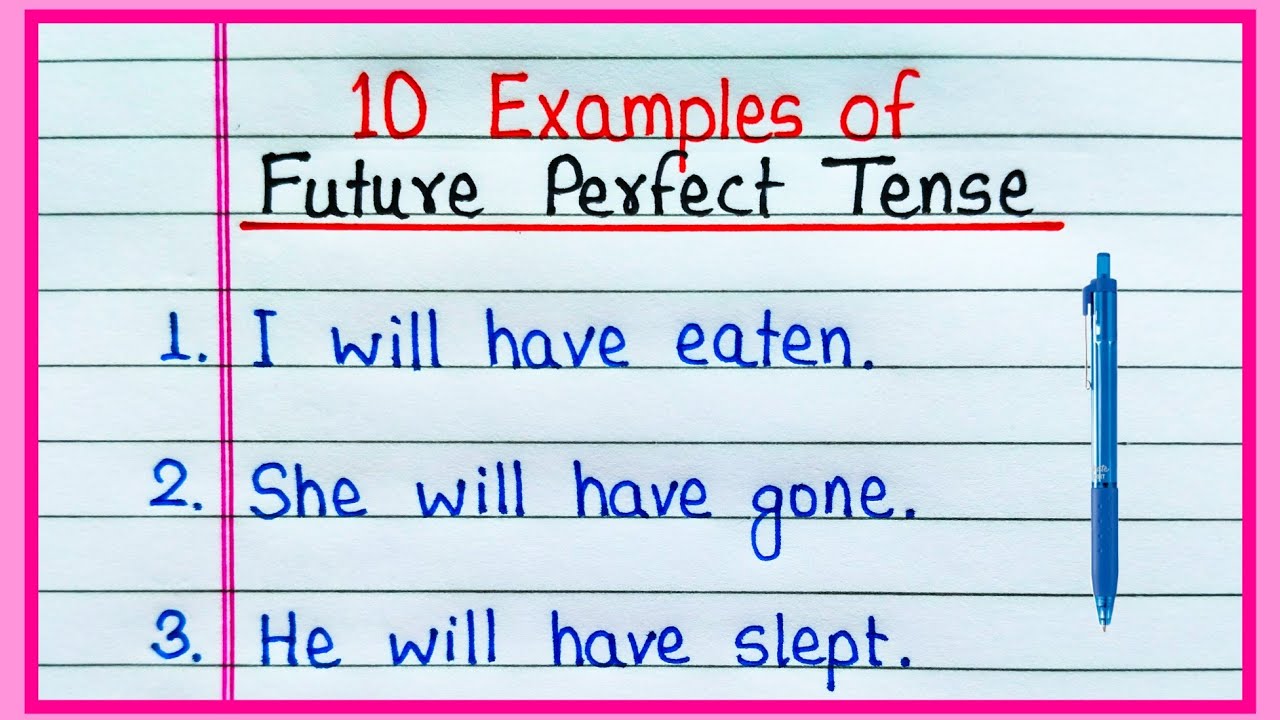 10 Examples of
Future Perfect Tense
1. I will have eaten.
2. She will have gone.
3. He will have slept.